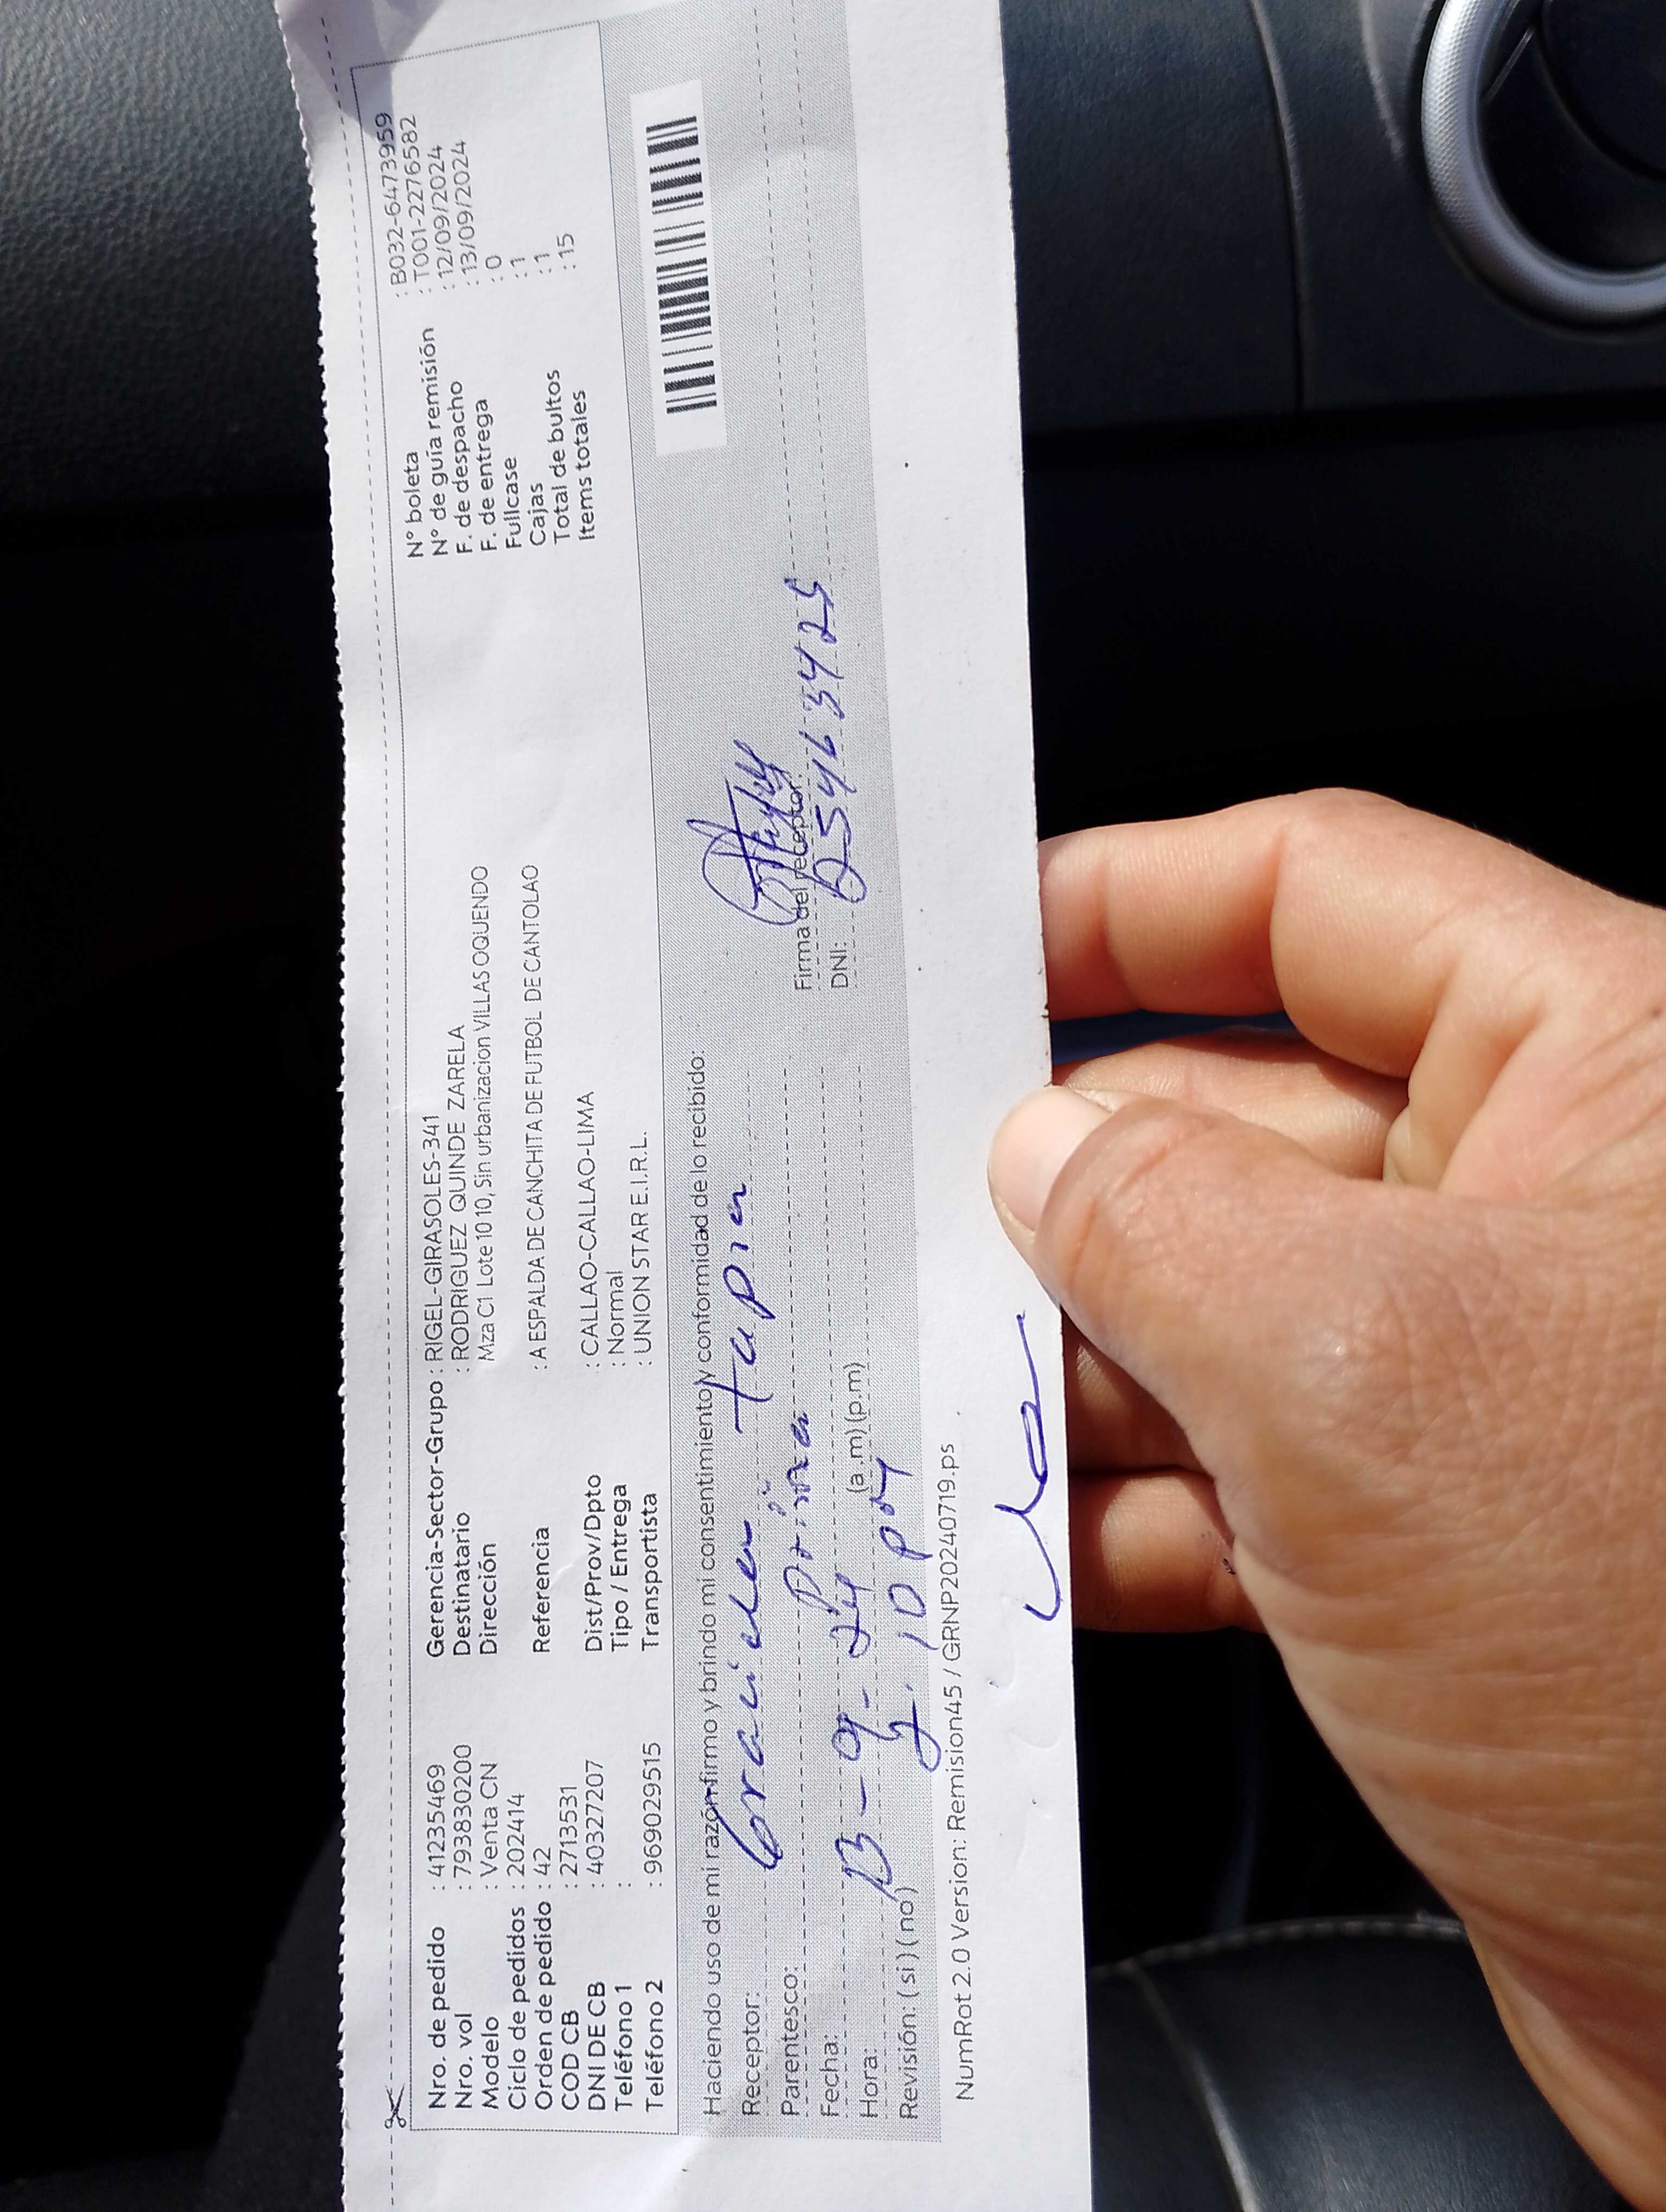 Nro. de pedido : 41235469
Nro. vol : 7938830200
Modelo : Venta CN
Ciclo de pedidos : 202414
Orden de pedido : 42
COD CB : 2713531
DNI DE CB : 40327207
Teléfono 1 :
Teléfono 2 : 969029515
Gerencia-Sector-Grupo : RIGEL-GIRASOLES-341
Destinatario : RODRIGUEZ QUINDE ZARELA
Dirección Mza C1 Lote 10 10, Sin urbanizacion VILLAS OQUENDO
Referencia : A ESPALDA DE CANCHITA DE FUTBOL DE CANTOLAO
Dist/Prov/Dpto : CALLAO-CALLAO-LIMA
Tipo / Entrega : Normal
Transportista : UNION STAR E.I.R.L.
N° boleta : B032-6473959
N° de guía remisión : T001-22276582
F. de despacho : 12/09/2024
F. de entrega : 13/09/2024
Fullcase : 0
Cajas : 1
Total de bultos : 1
Items totales : 15
Haciendo uso de mi razón firmo y brindo mi consentimiento y conformidad de lo recibido:
Receptor: Graciela tapia
Parentesco: Prima
Fecha: 13-09-24
Hora: 2.10 pm (a.m) (p.m)
Revisión: ( si ) ( no )
Firma del receptor:
DNI: 25463425
NumRot 2.0 Version: Remision45 / GRNP20240719.ps